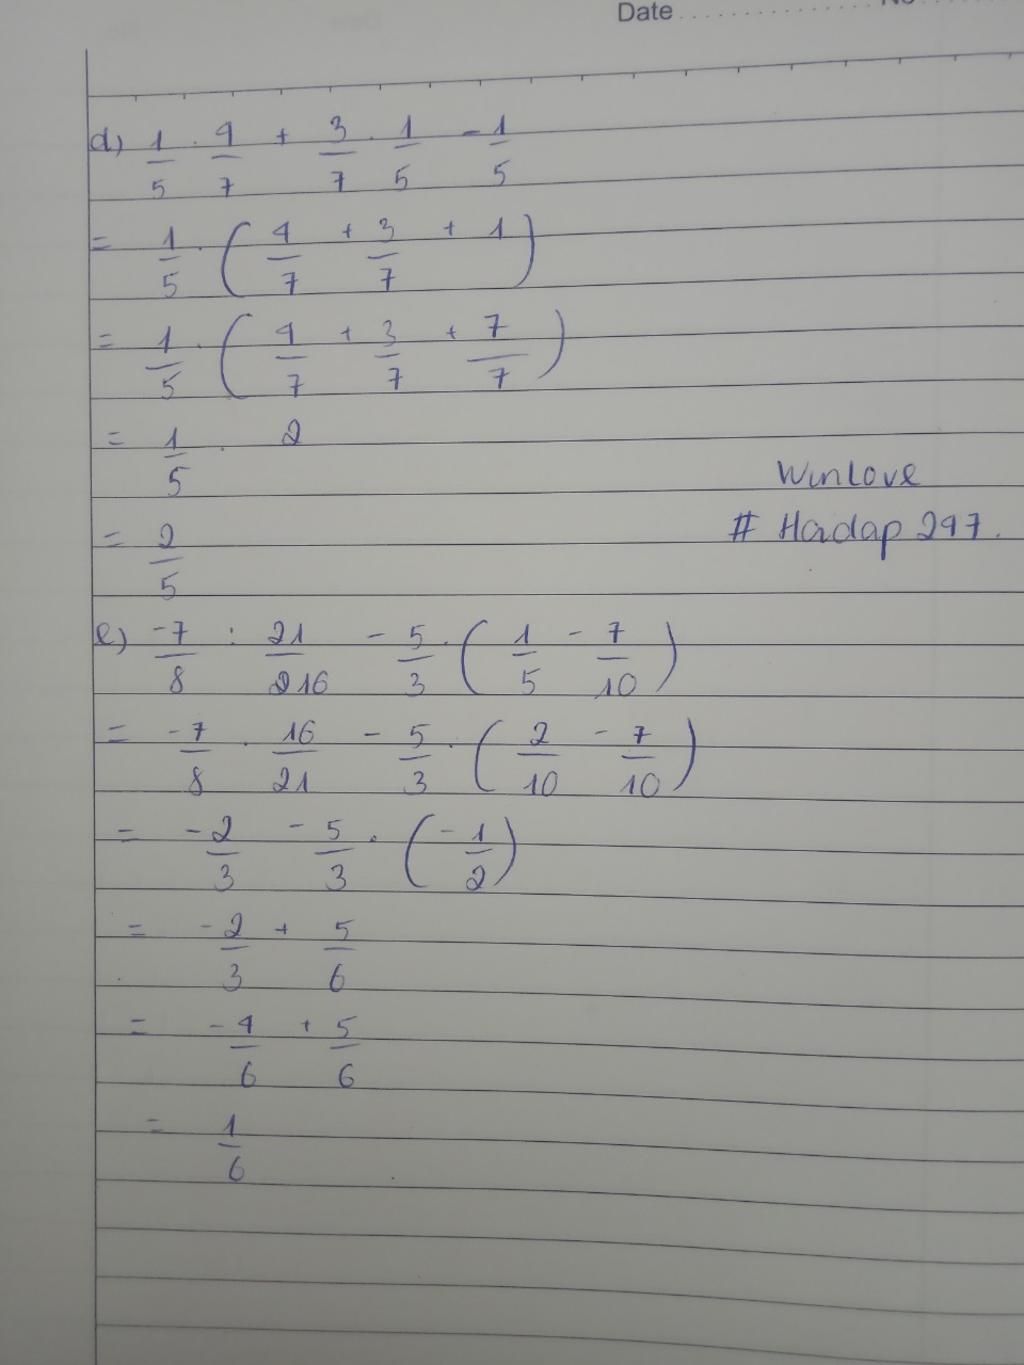 Date
d) 1/5 . 4/7 + 3/7 . 1/5 - 1/5
= 1/5 . ( 4/7 + 3/7 + 1 )
= 1/5 . ( 4/7 + 3/7 + 7/7 )
= 1/5 . 2
WinLove
= 2/5
# Hoidap 247.
e) -7/8 : 21/216 - 5/3 . ( 1/5 - 7/10 )
= -7/8 . 16/21 - 5/3 . ( 2/10 - 7/10 )
= -2/3 - 5/3 . ( -1/2 )
= -2/3 + 5/6
= -4/6 + 5/6
= 1/6